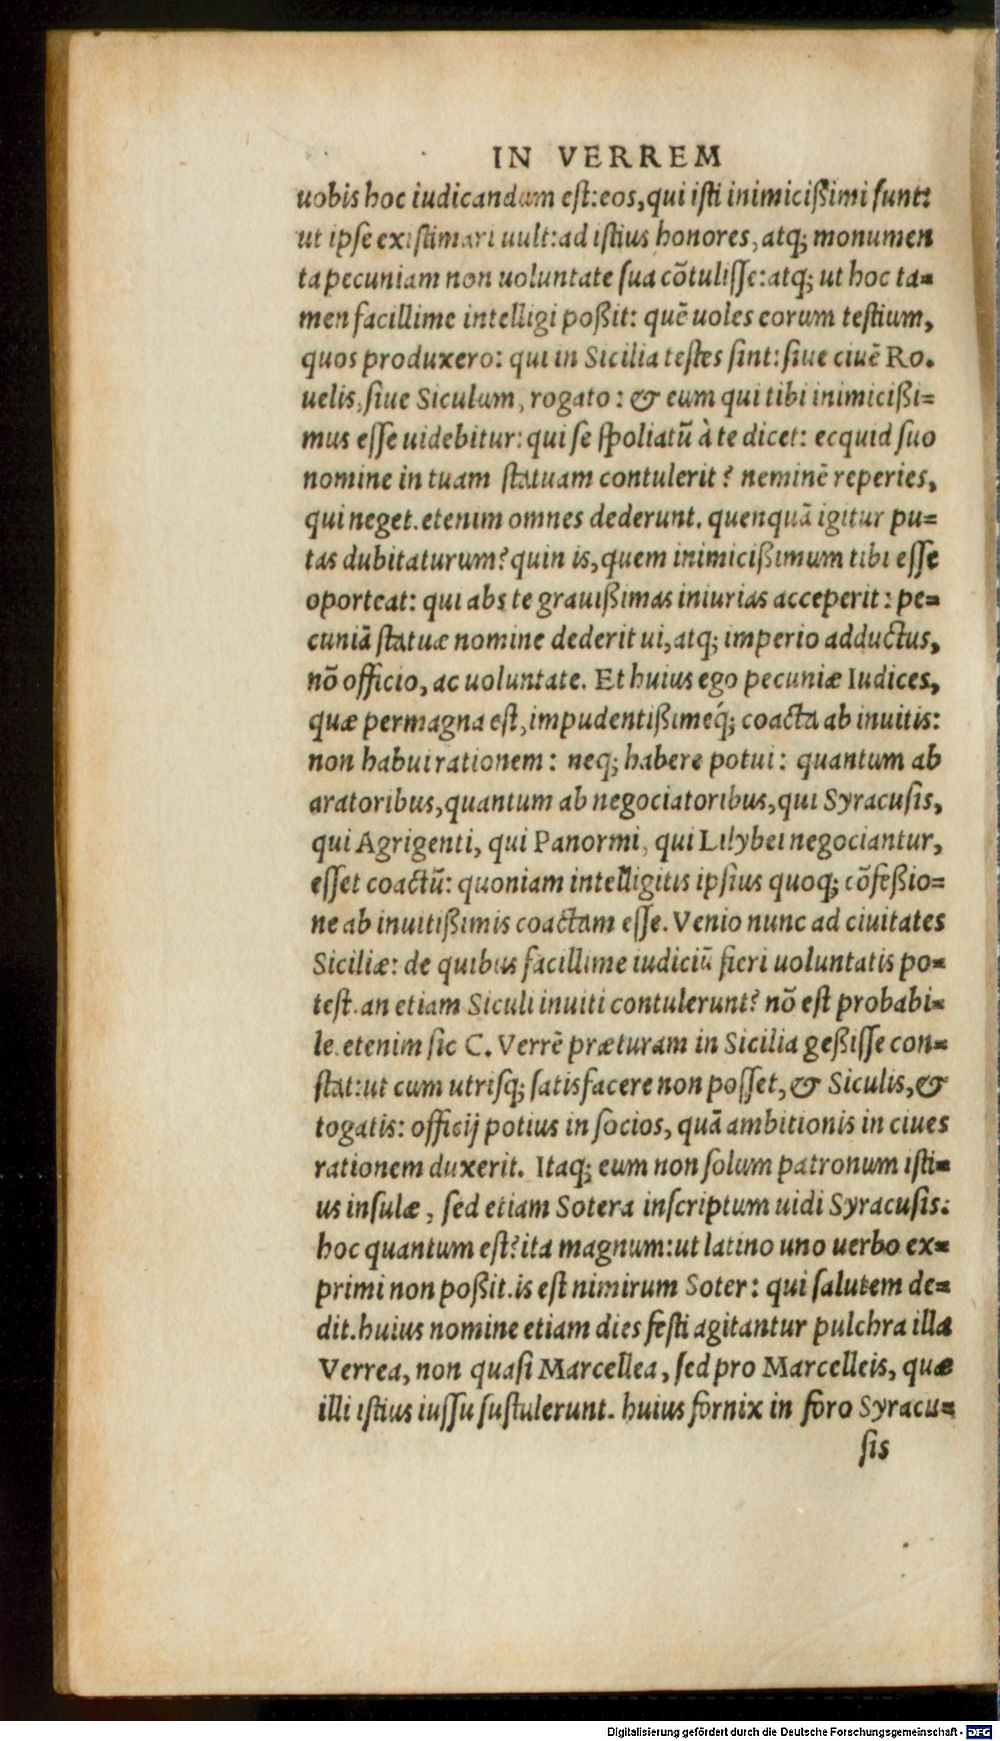 IN VERREM
uobis hoc iudicandum est:eos,qui isti inimicißimi sunt:
ut ipse existimari uult:ad istius honores, atq; monumen
ta pecuniam non uoluntate sua cõtulisse:atq; ut hoc ta=
men facillime intelligi poßit: quẽ uoles eorum testium,
quos produxero: qui in Sicilia testes sint:siue ciuẽ Ro.
uelis,siue Siculum, rogato: & eum qui tibi inimicißi=
mus esse uidebitur: qui se spoliatũ à te dicet: ecquid suo
nomine in tuam statuam contulerit? neminẽ reperies,
qui neget.etenim omnes dederunt. quenquã igitur pu=
tas dubitaturum?quin is,quem inimicißimum tibi esse
oporteat: qui abs te grauißimas iniurias acceperit: pe=
cuniã statuæ nomine dederit ui,atq; imperio adductus,
nõ officio, ac uoluntate. Et huius ego pecuniæ Iudices,
quæ permagna est,impudentißimeq́; coacta ab inuitis:
non habui rationem: neq; habere potui: quantum ab
aratoribus,quantum ab negociatoribus,qui Syracusis,
qui Agrigenti, qui Panormi, qui Lilybei negociantur,
esset coactũ: quoniam intelligitis ipsius quoq; cõfeßio=
ne ab inuitißimis coactam esse. Venio nunc ad ciuitates
Siciliæ: de quibus facillime iudiciũ fieri uoluntatis po=
test.an etiam Siculi inuiti contulerunt? nõ est probabi=
le.etenim sic C. Verrẽ præturam in Sicilia geßisse con=
stat:ut cum utrisq; satisfacere non posset, & Siculis, &
togatis: officij potius in socios, quã ambitionis in ciues
rationem duxerit. Itaq; eum non solum patronum isti=
us insulæ, sed etiam Sotera inscriptum uidi Syracusis:
hoc quantum est?ita magnum:ut latino uno uerbo ex=
primi non poßit.is est nimirum Soter: qui salutem de=
dit.huius nomine etiam dies festi agitantur pulchra illa
Verrea, non quasi Marcellea, sed pro Marcelleis, quæ
illi istius iussu sustulerunt. huius fornix in foro Syracu=
sis
Digitalisierung gefördert durch die Deutsche Forschungsgemeinschaft - DFG